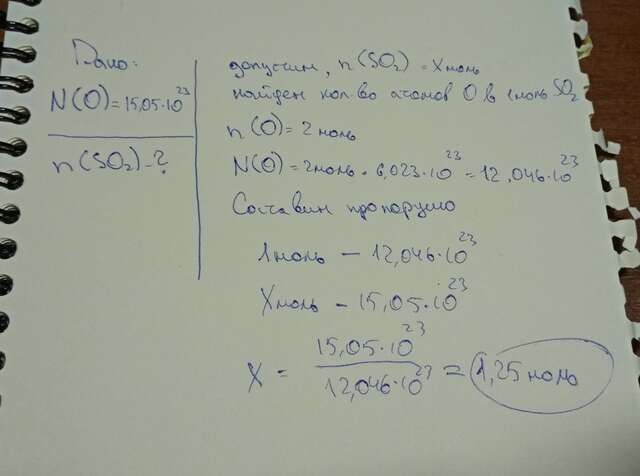 Дано:
N(O)=15,05·10²³
n(SO₂)-?
допустим, n(SO₂)=Xмоль
найдем кол-во атомов O в 1моль SO₂
n(O)=2моль
N(O)=2моль·6,023·10²³=12,046·10²³
Составим пропорцию
1моль – 12,046·10²³
Xмоль – 15,05·10²³
X = 15,05·10²³ / 12,046·10²³ = 1,25моль